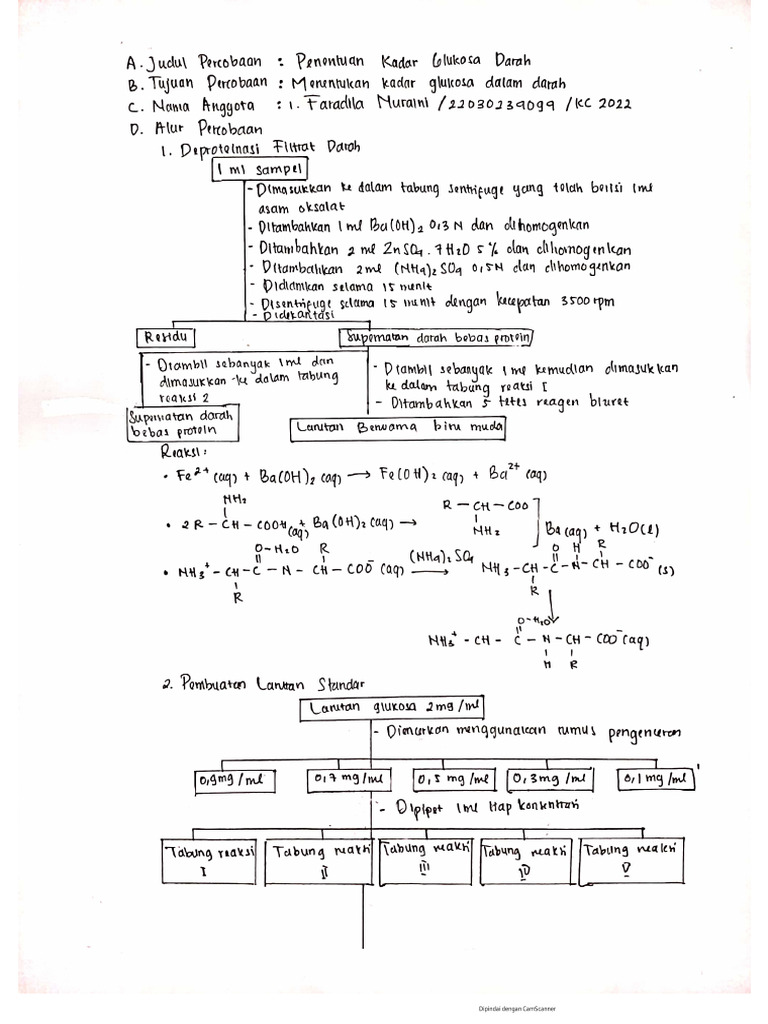 A. Judul Percobaan : Penentuan Kadar Glukosa Darah
B. Tujuan Percobaan : Menentukan kadar glukosa dalam darah
C. Nama Anggota : 1. Faradila Nuraini / 22030234099 / KC 2022
D. Alur Percobaan
1. Deproteinasi Filtrat Darah
1 ml sampel
- Dimasukkan ke dalam tabung sentrifuge yang telah berisi 1 ml
asam oksalat
- Ditambahkan 1 ml Ba(OH)2 0,3 N dan dihomogenkan
- Ditambahkan 2 ml ZnSO4 . 7H2O 5% dan dihomogenkan
- Ditambahkan 2 ml (NH4)2SO4 0,5N dan dihomogenkan
- Didiamkan selama 15 menit
- Disentrifuge selama 15 menit dengan kecepatan 3500 rpm
- Didekantasi
Residu
Supernatan darah bebas protein
- Diambil sebanyak 1 ml dan
dimasukkan ke dalam tabung
reaksi 2
- Diambil sebanyak 1 ml kemudian dimasukkan
ke dalam tabung reaksi I
- Ditambahkan 5 tetes reagen biuret
Supernatan darah
bebas protein
Larutan Berwarna biru muda
Reaksi :
• Fe2+ (aq) + Ba(OH)2 (aq) → Fe(OH)2 (aq) + Ba2+ (aq)
NH2
R – CH – COO
• 2R – CH – COOH (aq) + Ba(OH)2 (aq) →
NH2
Ba (aq) + H2O(l)
O–H2O R
(NH4)2SO4
O H R
• NH3+ – CH – C – N – CH – COO- (aq) → NH3 – CH – C – N – CH – COO- (s)
R
R
O–H2O
NH3+ – CH – C – N – CH – COO- (aq)
H R
2. Pembuatan Larutan Standar
Larutan glukosa 2 mg/ml
- Diencerkan menggunakan rumus pengenceran
0,9 mg/ml
0,7 mg/ml
0,5 mg/ml
0,3 mg/ml
0,1 mg/ml
- Dipipet 1 ml tiap konsentrasi
Tabung reaksi
I
Tabung reaksi
II
Tabung reaksi
III
Tabung reaksi
IV
Tabung reaksi
V
Dipindai dengan CamScanner